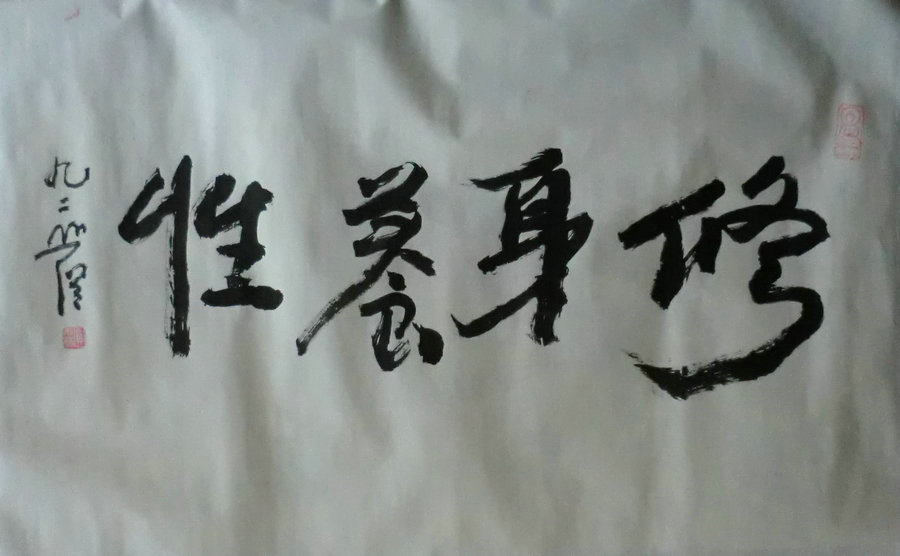 修身養性
九二